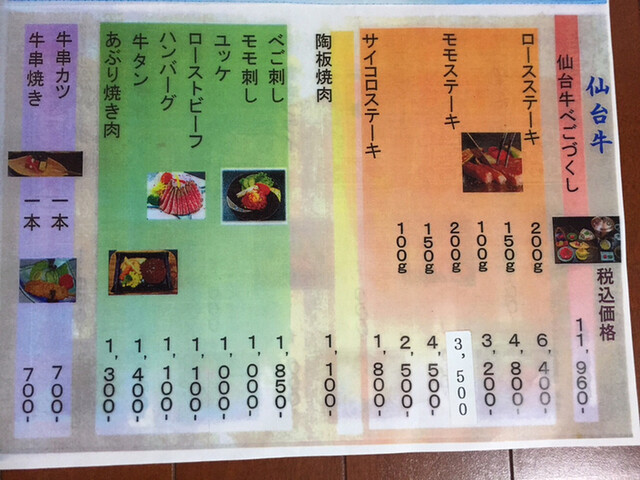 仙台牛
税込価格
仙台牛べごづくし 11,960-
ロースステーキ 200g 6,400-
150g 4,800-
100g 3,200-
モモステーキ 200g 3,500
150g 4,500-
100g 2,500-
サイコロステーキ 1,800-
陶板焼肉 1,100-
べご刺し 1,850-
モモ刺し 1,000-
ユッケ 1,000-
ローストビーフ 1,100-
ハンバーグ 1,100-
牛タン 1,400-
あぶり焼き肉 1,300-
牛串カツ 一本 700-
牛串焼き 一本 700-